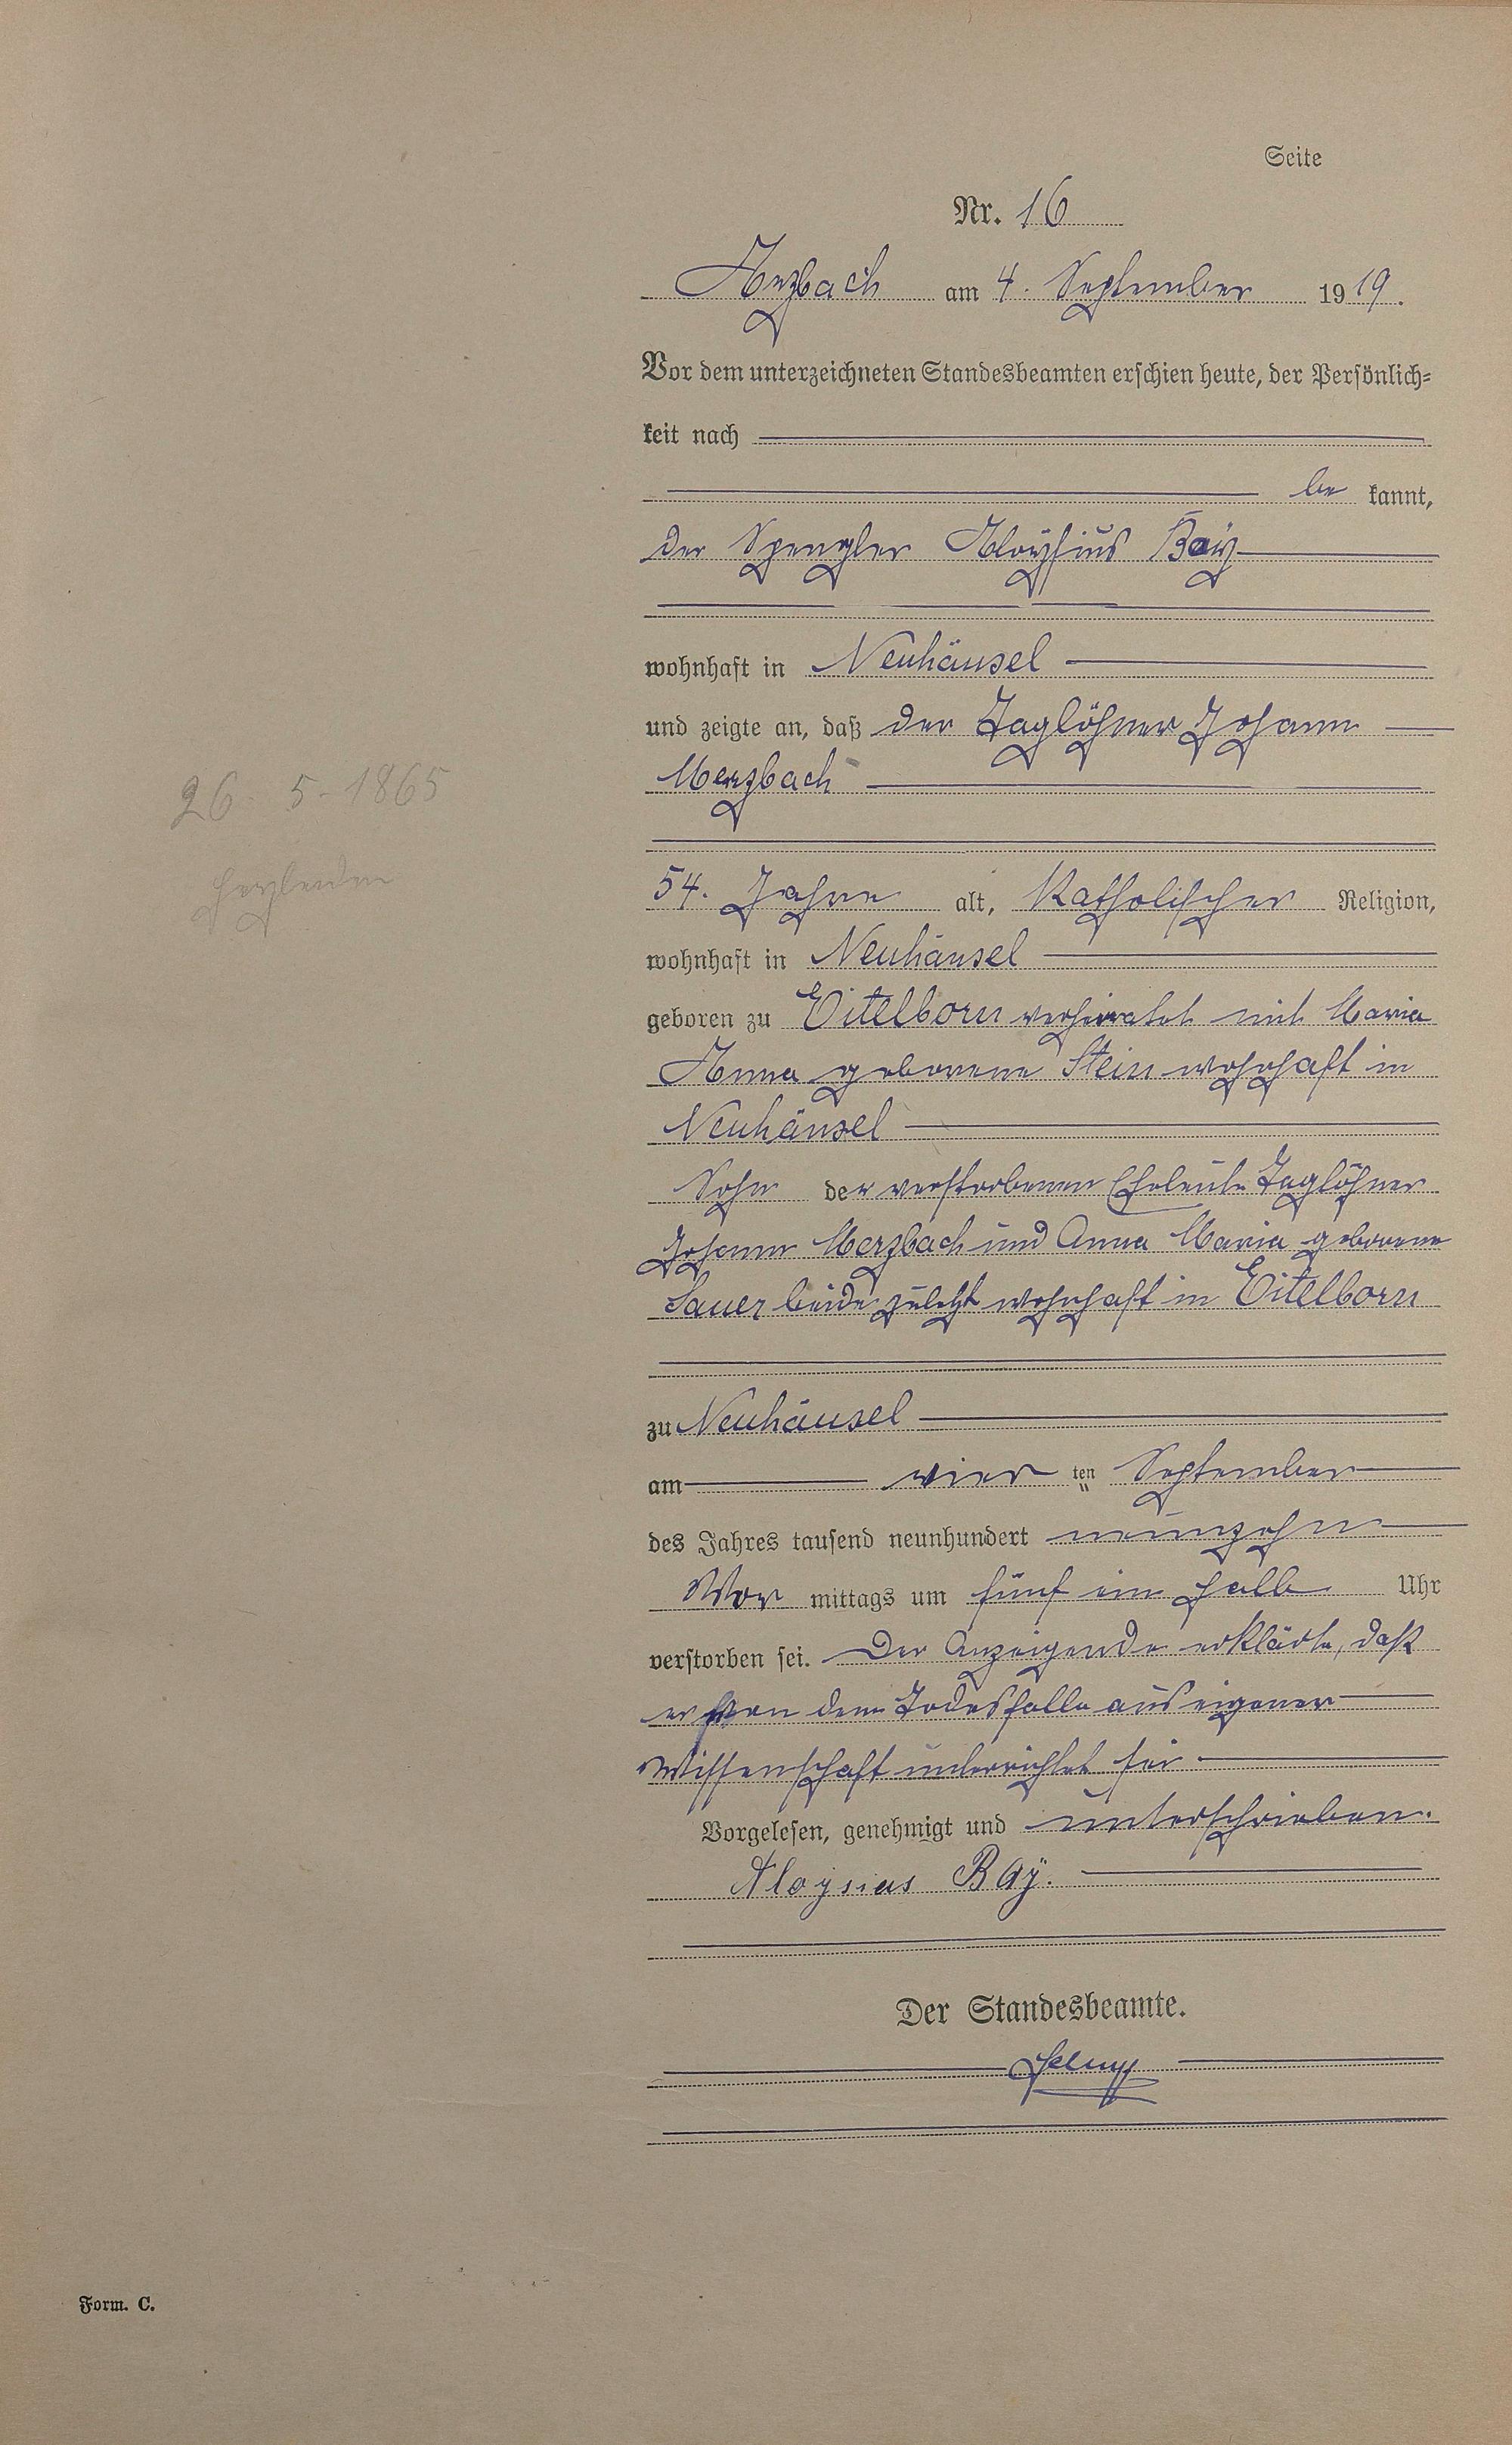 Seite
Nr. 16
Arzbach am 4. September 1919.
Vor dem unterzeichneten Standesbeamten erschien heute, der Persönlich-
keit nach
be kannt,
der Spengler Aloÿsius Baÿ
wohnhaft in Neuhäusel
und zeigte an, daß der Taglöhner Johann
Merzbach
54. Jahre alt, Katholischer Religion,
wohnhaft in Neuhäusel
geboren zu Eitelborn verheiratet mit Maria
Anna geborene Stein wohnhaft in
Neuhäusel
Sohn der verstorbenen Eheleute Taglöhner
Johann Merzbach und Anna Maria geborene
Sauer beide zuletzt wohnhaft in Eitelborn
zu Neuhäusel
am vier ten September
des Jahres tausend neunhundert neunzehn
Vor mittags um fünf ein halb Uhr
verstorben sei. Der Anzeigende erklärte, daß
er von dem Todesfalle aus eigener
Wissenschaft unterrichtet sei
Vorgelesen, genehmigt und unterschrieben.
Aloysius Baÿ.
Der Standesbeamte.
26. 5. 1865
Herzleiden
Form. C.